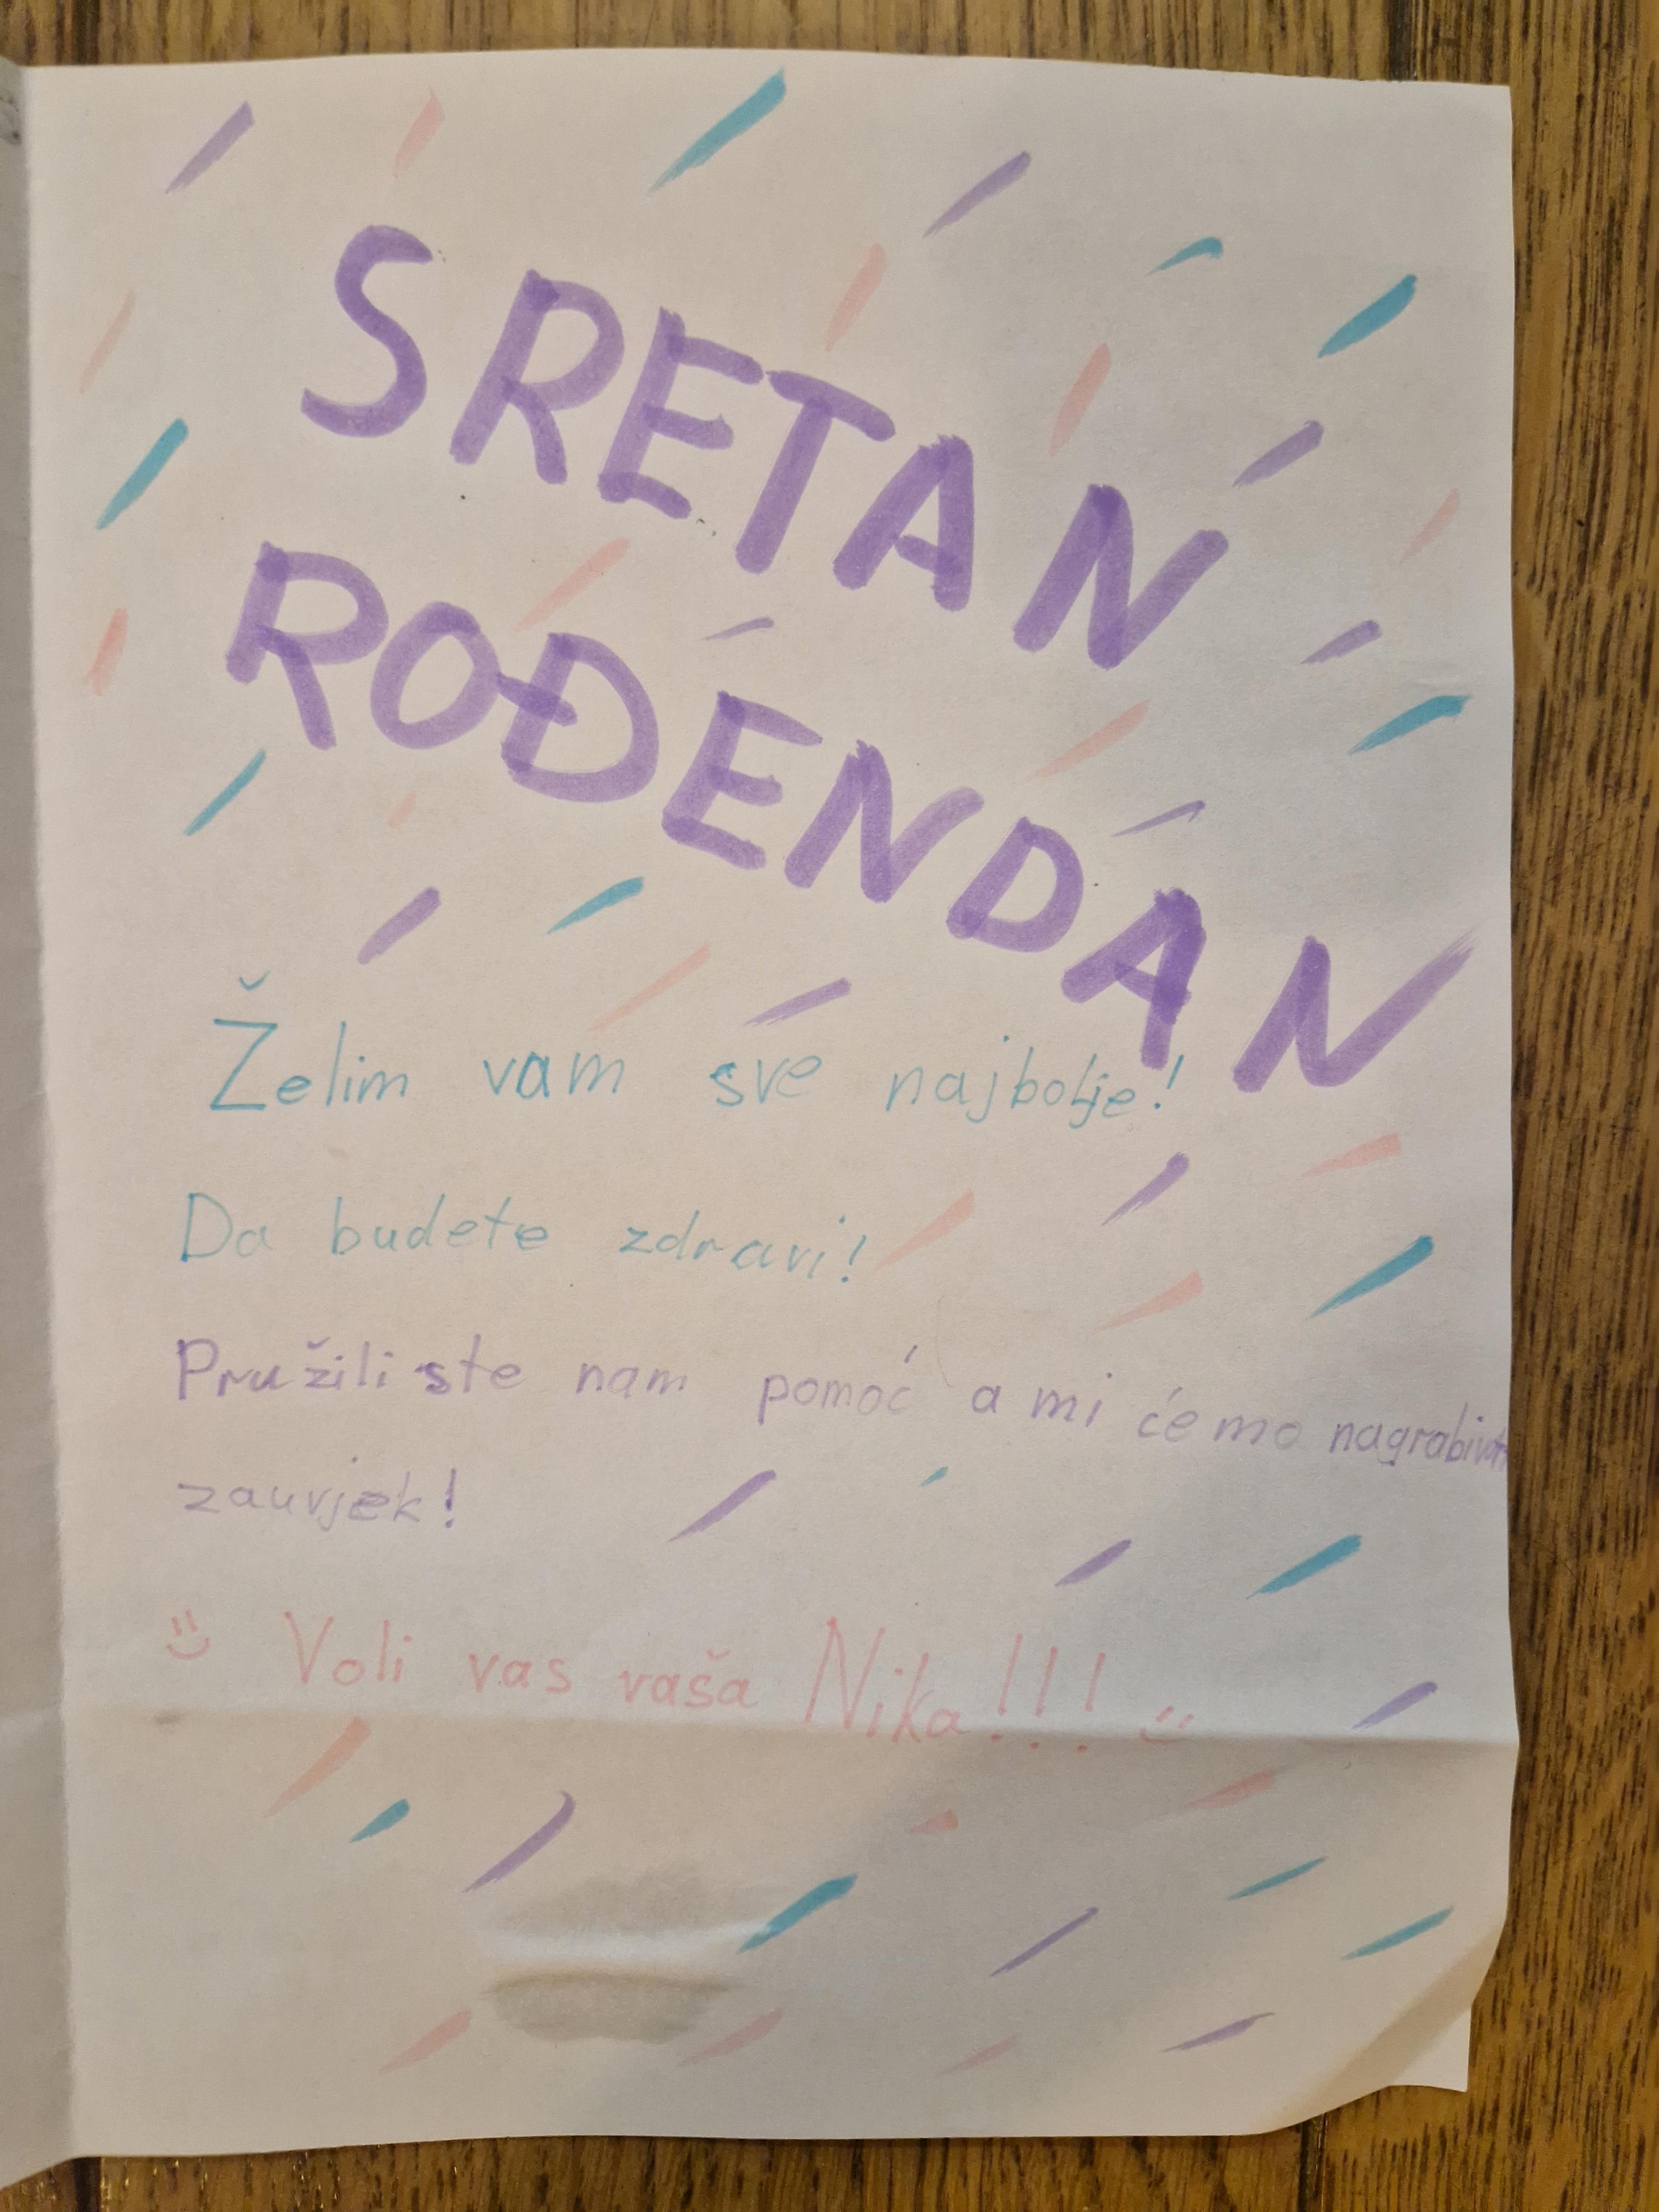 SRETAN
ROĐENDAN
Želim vam sve najbolje!
Da budete zdravi!
Pružili ste nam pomoć a mi ćemo
zauvjek!
Voli vas vaša Nika!!!